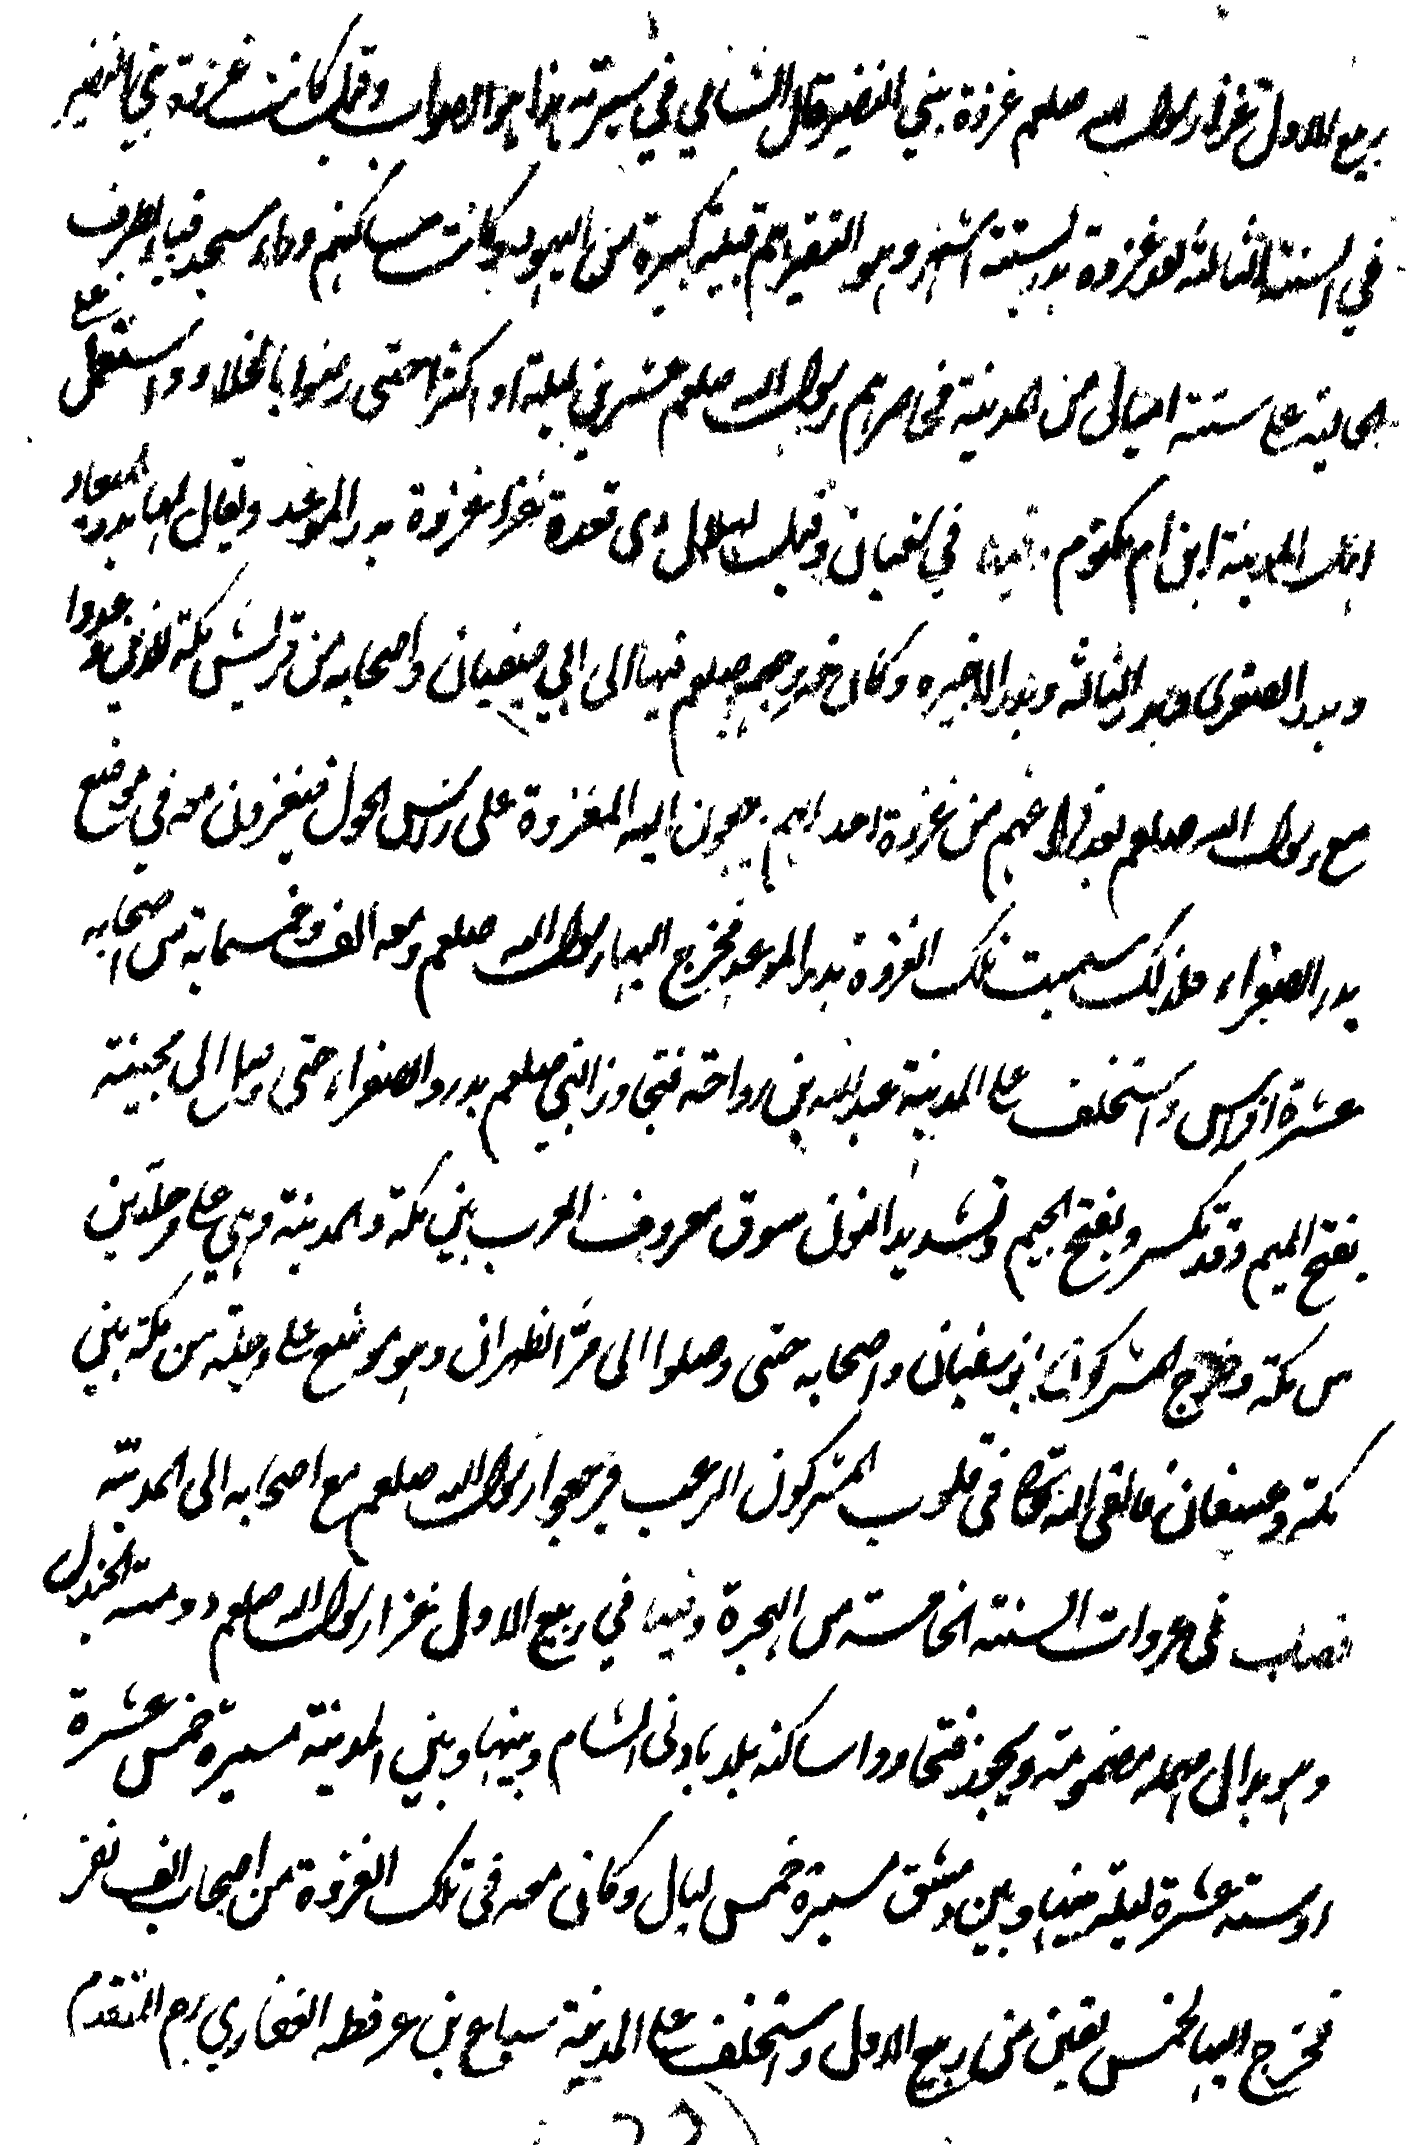 ربيع الاول غزا رسول الله صلعم غزوة بني النضير قال الشامي في سيرته هذا هو الصواب وقيل كانت غزوة بني النضير
في السنة الثالثة بعد غزوة بدر بستة اشهر وبنو النضير هم قبيلة كبيرة من اليهود وكانت مساكنهم وراء مسجد قباء بطرف
العالية على ستة اميال من المدينة فحاصرهم رسول الله صلعم عشرين ليلة او اكثر حتى رضوا بالجلاء واستعمل على
اهل المدينة ابن ام مكتوم وفيها في شعبان وقيل لهلال ذى قعدة غزا غزوة بدر الموعد ويقال لها بدر الميعاد
وبدر الصغرى وبدر الثالثة وبدر الاخيره وكان خروجه صلعم فيها الى ابي سفيان واصحابه من قريش مكة الذين وعدوا
مع رسول الله صلعم بعد فراغهم من غزوة احد انهم يرجعون اليه المغزوة على راس الحول فيغزون معه في موضع
بدر الصفراء فلذلك سميت تلك الغزوة بدر الموعد فخرج اليها رسول الله صلعم ومعه الف وخمسماية من اصحابه
عشرة افراس واستخلف على المدينة عبد الله بن رواحة فتجاوز النبي صلعم بدر والصفراء حتى وصل الى مجينة
بفتح الميم وقد تكسر وبفتح الجيم وتشديد النون سوق معروف العرب بين مكة والمدينة وهي على مرحلتين
من مكة وخرج المشركون ابو سفيان واصحابه حتى وصلوا الى مر الظهران وهو موضع على مرحلة من مكة بين
مكة وعسفان فالقى الله تعالى في قلوب المشركون الرعب فرجعوا ورسول الله صلعم مع اصحابه الى المدينة
فصل في غزوات السنة الخامسة من الهجرة وفيها في ربيع الاول غزا رسول الله صلعم دومة الجندل
وهو بدال مهملة مضمومة ويجوز فتحها وواو ساكنة بلد بادنى الشام وبينها وبين المدينة مسيرة خمس عشرة
او ستة عشرة ليلة بينها وبين دمشق مسيرة خمس ليال وكان معه في تلك الغزوة من اصحاب الف نفر
فخرج اليها لخمس بقين من ربيع الاول واستخلف على المدينة سباع بن عرفطه الغفاري رضي المتقدم